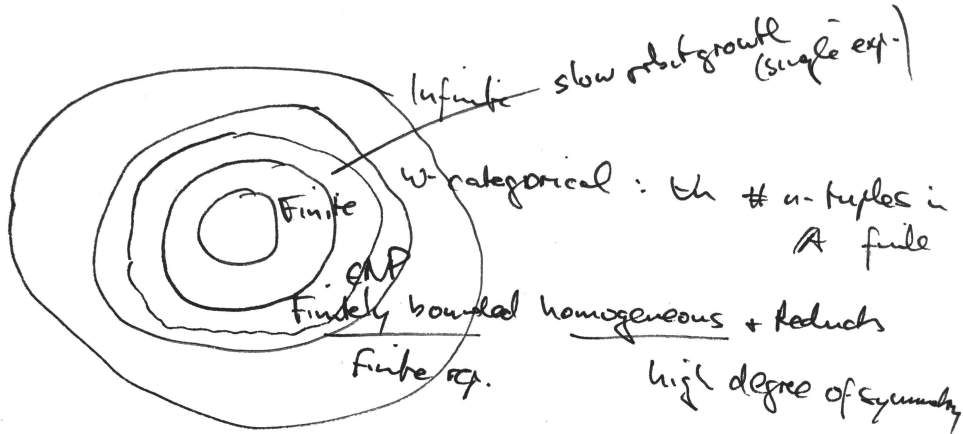 slow orbit growth
(single exp.)
Infinite
ω-categorical : # n-tuples in
A finite
Finite
∈NP
Finitely bounded homogeneous + Reducts
Finite rep.
high degree of symmetry